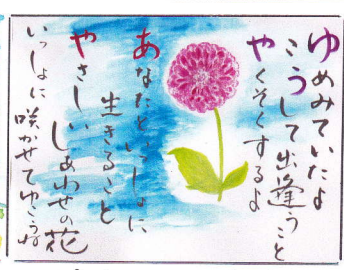 ゆめみていたよ
こうして出逢うこと
やくそくするよ
あなたといっしょに
生きること
やさしいしあわせの花
いっしょに咲かせてゆこうね